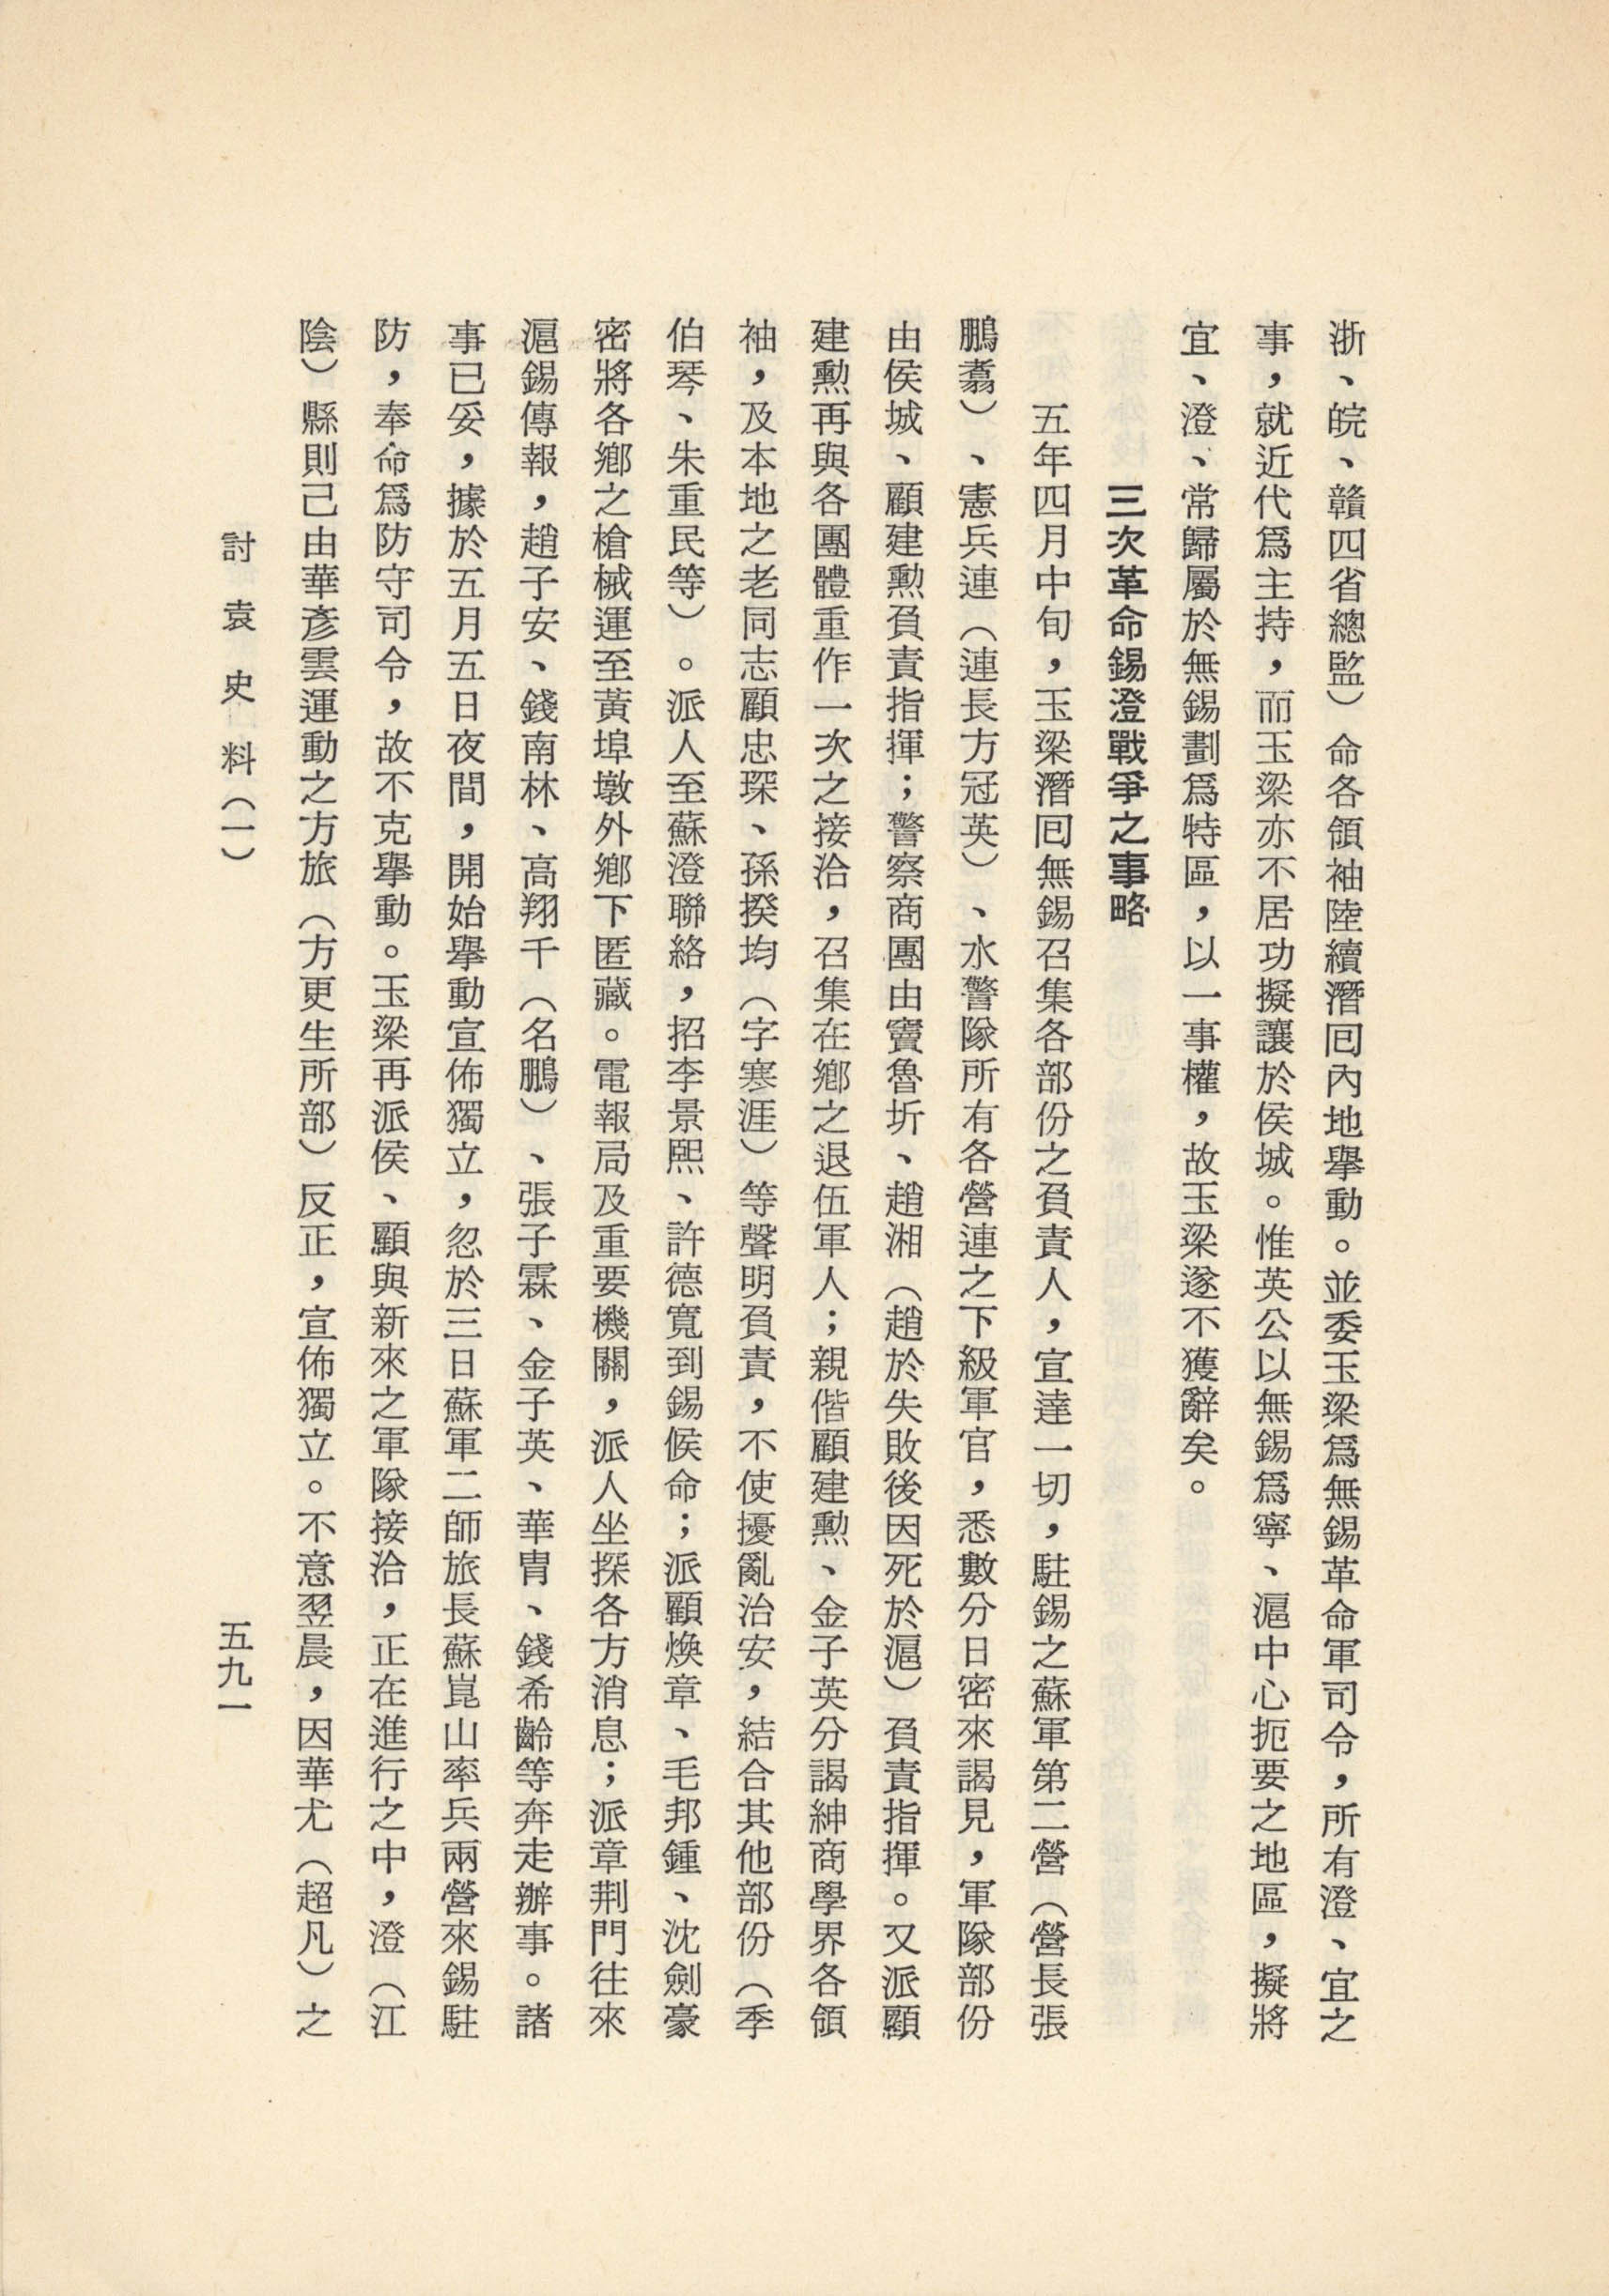 浙、皖、贛四省總監）命各領袖陸續潛囘內地舉動。並委玉梁爲無錫革命軍司令，所有澄、宜之
事，就近代爲主持，而玉梁亦不居功擬讓於侯城。惟英公以無錫爲寧、滬中心扼要之地區，擬將
宜、澄、常歸屬於無錫劃爲特區，以一事權，故玉梁遂不獲辭矣。
三次革命錫澄戰爭之事略
五年四月中旬，玉梁潛囘無錫召集各部份之負責人，宣達一切，駐錫之蘇軍第二營（營長張
鵬翥）、憲兵連（連長方冠英）、水警隊所有各營連之下級軍官，悉數分日密來謁見，軍隊部份
由侯城、顧建勲負責指揮；警察商團由竇魯圻、趙湘（趙於失敗後因死於滬）負責指揮。又派顧
建勲再與各團體重作一次之接洽，召集在鄉之退伍軍人；親偕顧建勲、金子英分謁紳商學界各領
袖，及本地之老同志顧忠琛、孫揆均（字寒涯）等聲明負責，不使擾亂治安，結合其他部份（季
伯琴、朱重民等）。派人至蘇澄聯絡，招李景熙、許德寬到錫候命；派顧煥章、毛邦鍾、沈劍豪
密將各鄉之槍械運至黃埠墩外鄉下匿藏。電報局及重要機關，派人坐探各方消息；派章荆門往來
滬錫傳報，趙子安、錢南林、高翔千（名鵬）、張子霖、金子英、華胄、錢希齡等奔走辦事。諸
事已妥，據於五月五日夜間，開始舉動宣佈獨立，忽於三日蘇軍二師旅長蘇崑山率兵兩營來錫駐
防，奉命爲防守司令，故不克舉動。玉梁再派侯、顧與新來之軍隊接洽，正在進行之中，澄（江
陰）縣則己由華彥雲運動之方旅（方更生所部）反正，宣佈獨立。不意翌晨，因華尤（超凡）之
討袁史料（一）
五九一